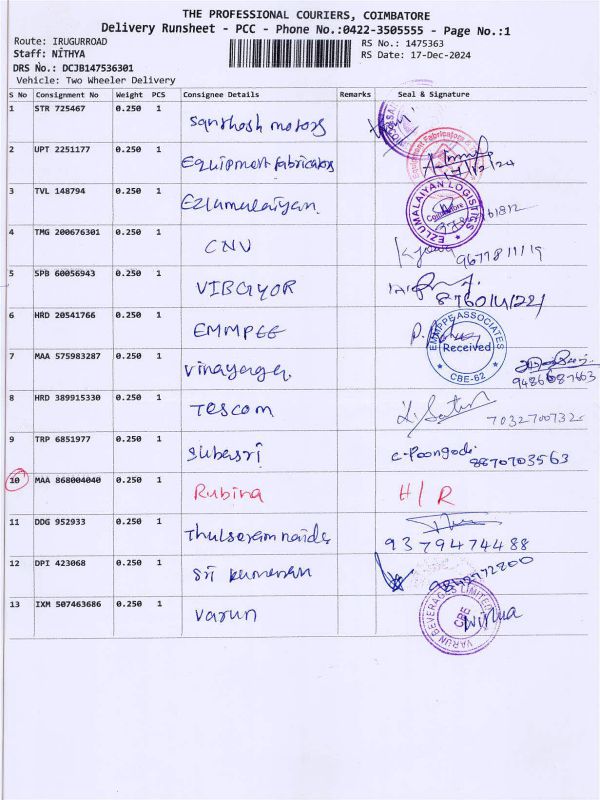 THE PROFESSIONAL COURIERS, COIMBATORE
Delivery Runsheet - PCC - Phone No.:0422-3505555 - Page No.:1
Route: IRUGURROAD
RS No.: 1475363
Staff: NITHYA
RS Date: 17-Dec-2024
DRS No.: DCJB147536301
Vehicle: Two Wheeler Delivery
S No Consignment No Weight PCS Consignee Details Remarks Seal & Signature
1 STR 725467 0.250 1 Santhosh motors
2 UPT 2251177 0.250 1 Equipment fabricators
3 TVL 148794 0.250 1 Ezlumalaiyan EZLUMALAIYAN LOGISTICS Coimbatore
4 TMG 200676301 0.250 1 CNU 9677811119
5 SPB 60056943 0.250 1 VIBGYOR
6 HRD 20541766 0.250 1 EMMPEE EMMPPE ASSOCIATES Received CBE-62
7 MAA 575983287 0.250 1 Vinayaga 9486687663
8 HRD 389915330 0.250 1 Tescom 7032700732
9 TRP 6851977 0.250 1 Subasri C-Poongodi 8870703563
10 MAA 868004040 0.250 1 Rubina H/R
11 DDG 952933 0.250 1 9379474488
12 DPI 423068 0.250 1 Sri
13 IXM 507463686 0.250 1 Varun VARUN BEVERAGES LIMITED CBE